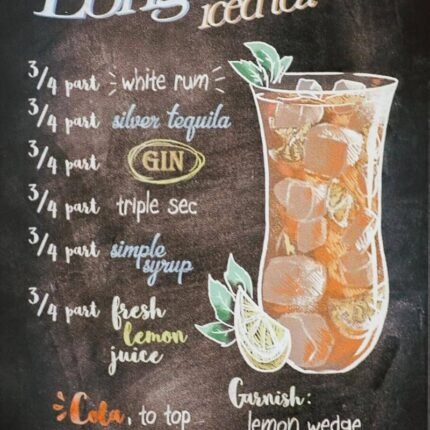 Long
iced tea
3/4 part white rum
3/4 part silver tequila
3/4 part GIN
3/4 part triple sec
3/4 part simple
syrup
3/4 part fresh
lemon
juice
Cola, to top
Garnish:
lemon wedge